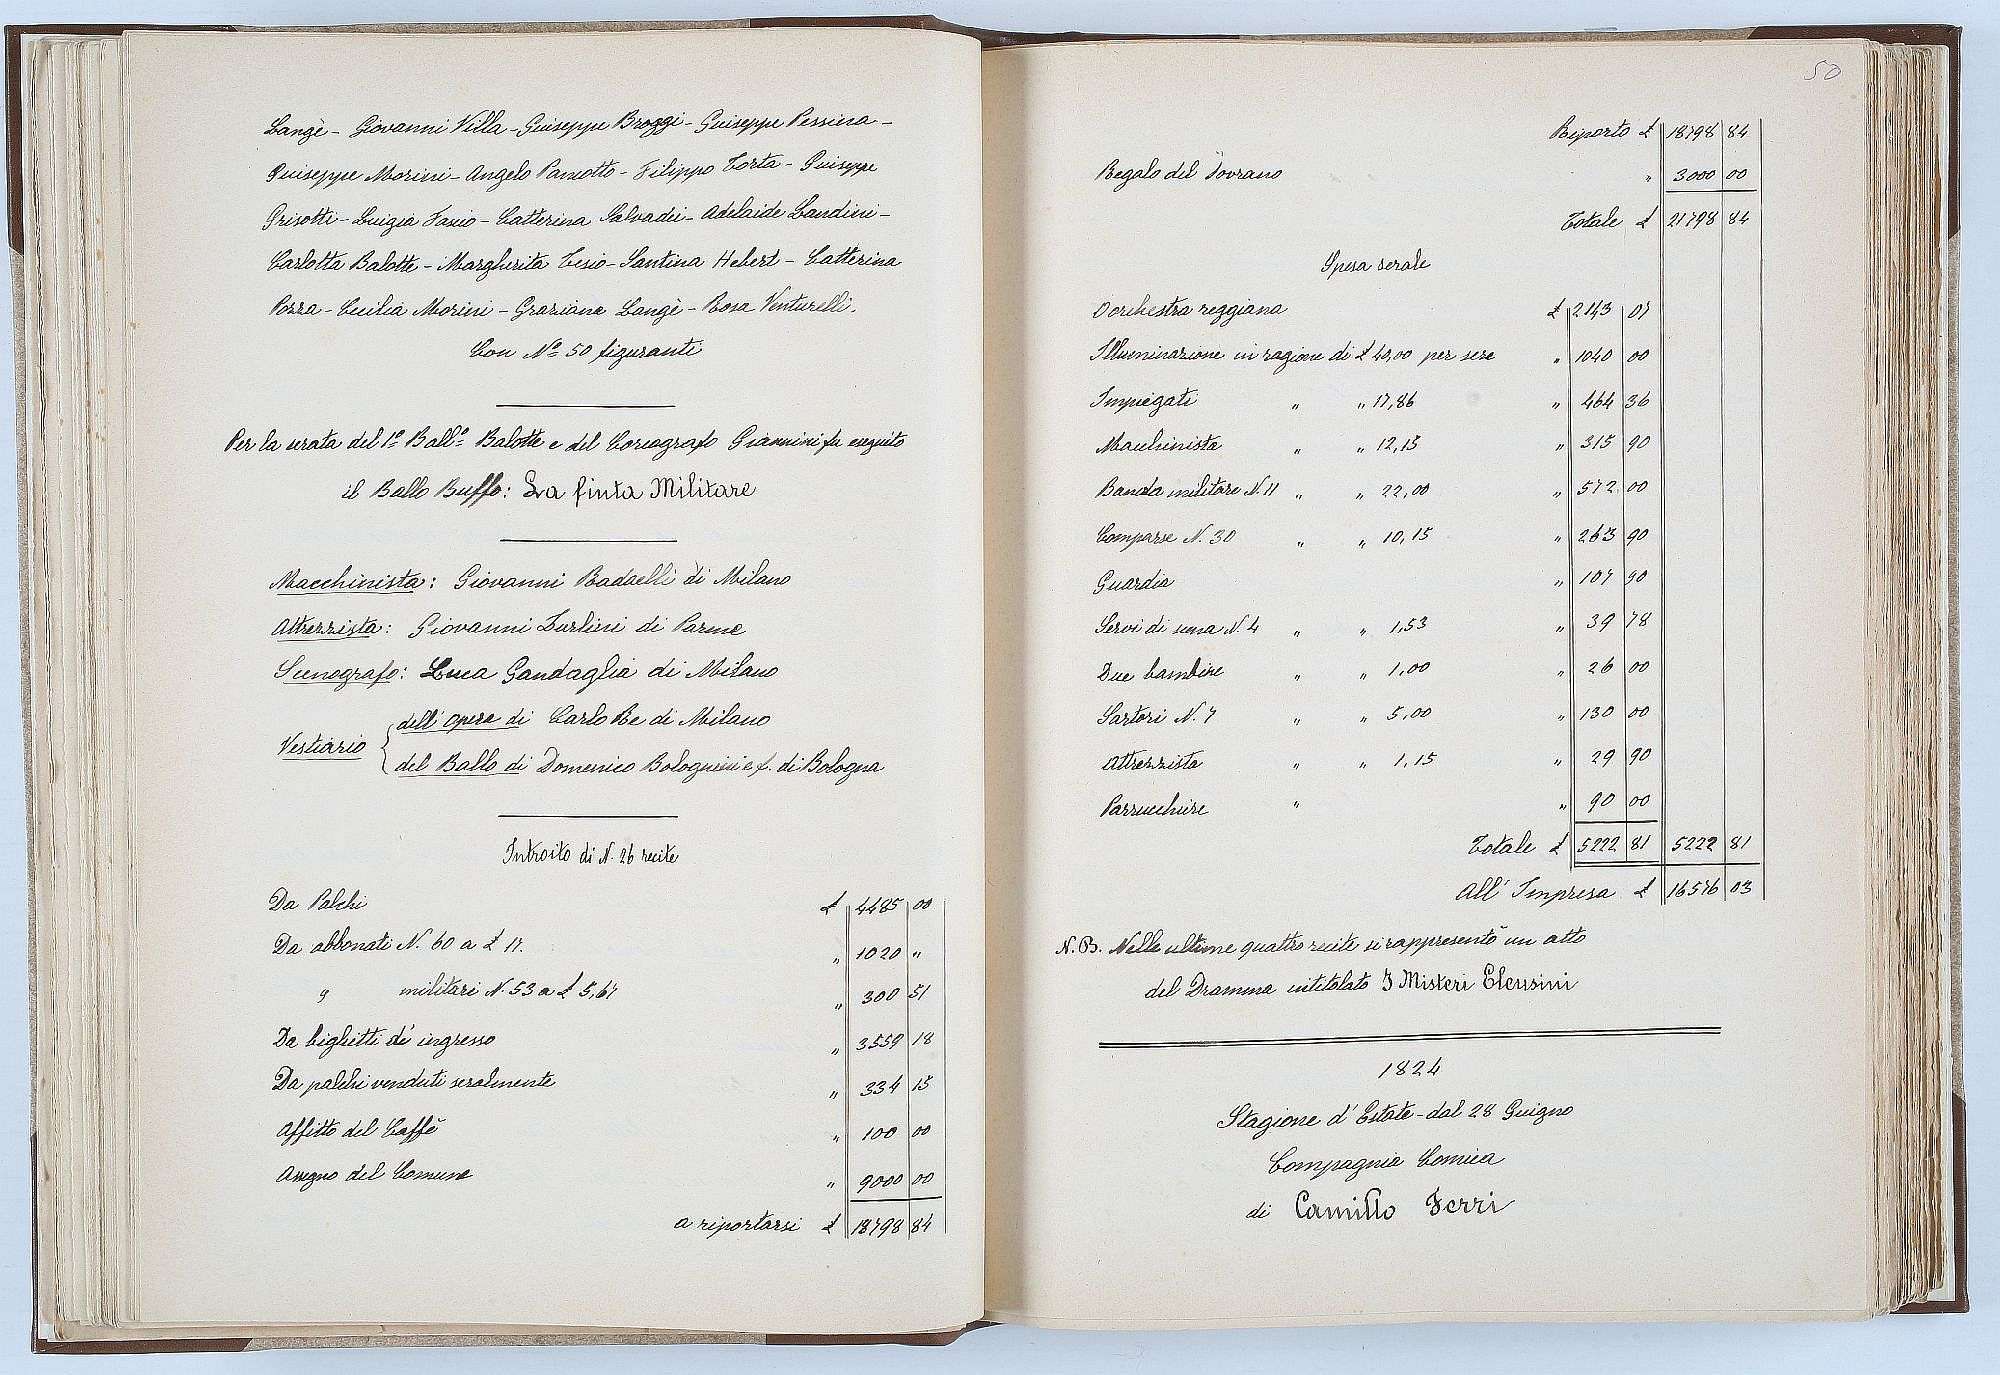 Langè - Giovanni Villa - Giuseppe Broggi - Giuseppe Pessina -
Giuseppe Morini - Angelo Paniotto - Filippo Torta - Giuseppe
Grisotti - Luigia Fasio - Catterina Salvadei - Adelaide Landini -
Carlotta Balotte - Margherita Tesio - Santina Hebert - Catterina
Pozza - Cecilia Morini - Graziana Langè - Rosa Venturelli.
Con N.° 50 figuranti
Per la serata del 1° Ball.° Balotte e del Coreografo Giannini fu eseguito
il Ballo Buffo: La finta Militare
Macchinista: Giovanni Badaelli di Milano
Attrezzista: Giovanni Zurlini di Parma
Scenografo: Luca Gandaglia di Milano
Vestiario
dell'opera di Carlo Re di Milano
del Ballo di Domenico Bolognini e f. di Bologna
Introito di N. 26 recite
Da Palchi £ 4485 00
Da abbonati N. 60 a £ 17. " 1020 "
" militari N. 53 a £ 5,67 " 300 51
Da biglietti d'ingresso " 3559 18
Da palchi venduti seralmente " 334 15
Affitto del Caffè " 100 00
Assegno del Comune " 9000 00
a riportarsi £ 18798 84
50
Riporto £ 18798 84
Regalo del Sovrano " 3000 00
Totale £ 21798 84
Spesa serale
Oorchestra reggiana £ 2143 07
Illuminazione in ragione di £ 40,00 per sera " 1040 00
Impiegati " " 17,86 " 464 36
Macchinista " " 12,15 " 315 90
Banda militare N. 11 " " 22,00 " 572 00
Comparse N. 30 " " 10,15 " 263 90
Guardia " 107 90
Servi di scena N. 4 " " 1,53 " 39 78
Due bambine " " 1,00 " 26 00
Sartori N. 7 " " 5,00 " 130 00
Attrezzista " " 1,15 " 29 90
Parrucchiere " " 90 00
Totale £ 5222 81 5222 81
All'Impresa £ 16576 03
N.B. Nelle ultime quattro recite si rappresentò un atto
del Dramma intitolato I Misteri Eleusini
1824
Stagione d'Estate - dal 28 Giugno
Compagnia Comica
di Camillo Ferri